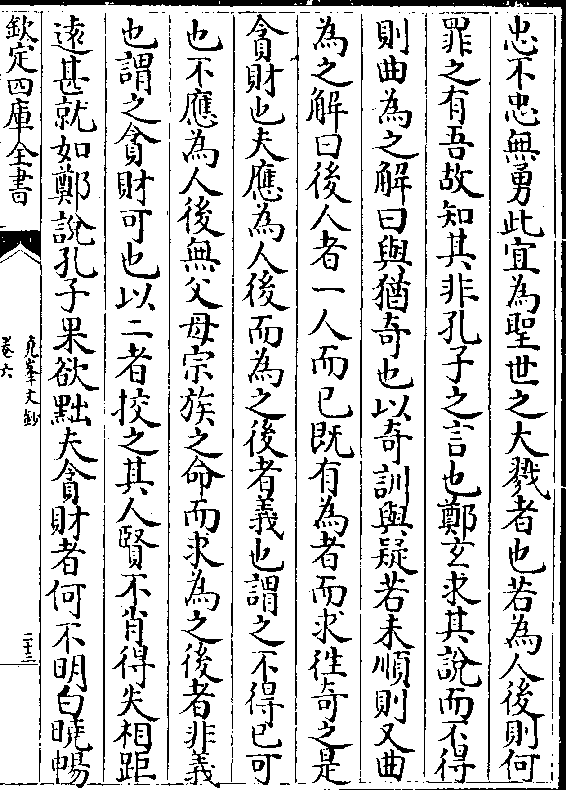 忠不忠無勇此宜為聖世之大戮者也若為人後則何
罪之有吾故知其非孔子之言也鄭玄求其說而不得
則曲為之解曰與猶奇也以奇訓與疑若未順則又曲
為之解曰後人者一人而已既有為者而求徃奇之是
貪財也夫應為人後而為之後者義也謂之不得已可
也不應為人後無父母宗族之命而求為之後者非義
也謂之貪財可也以二者挍之其人賢不肖得失相距
逺甚就如鄭說孔子果欲黜夫貪財者何不明白曉暢
欽定四庫全書
堯峯文鈔
卷六
二十三